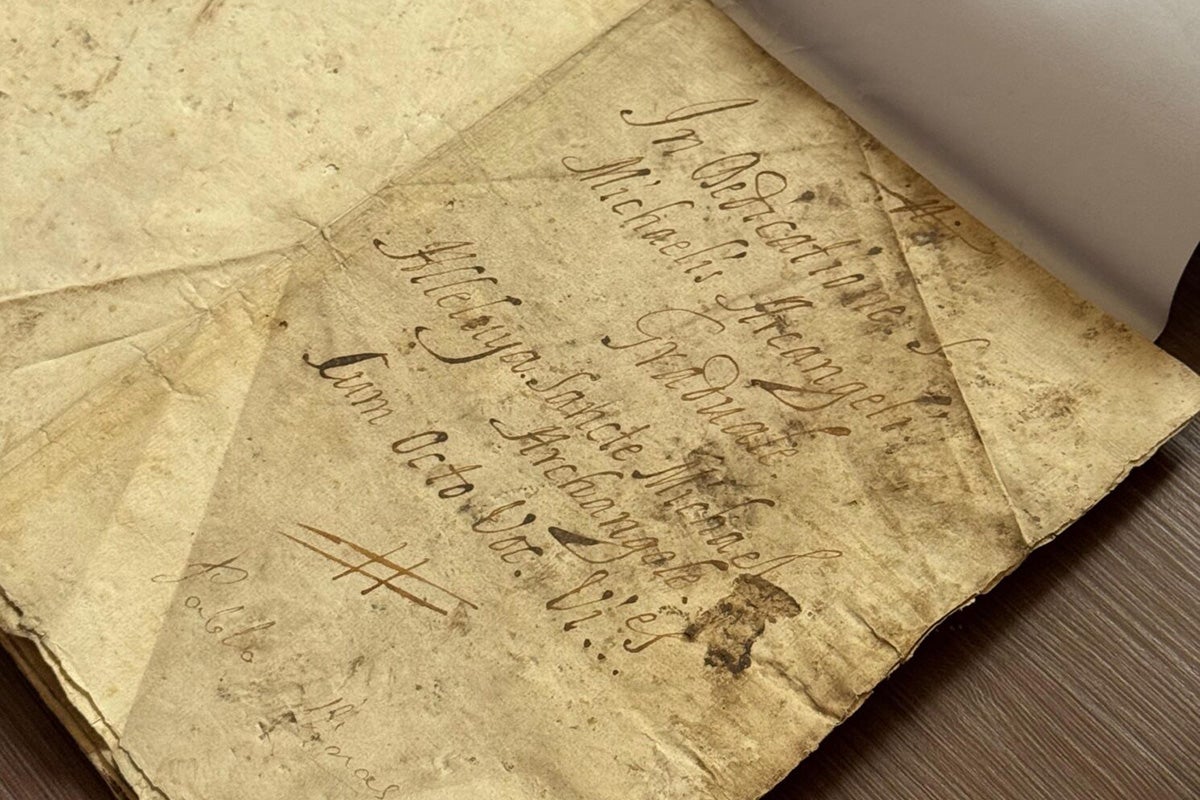 In Dedicatione S
Michaelis Arcangeli.
Graduale
Alleluya. Sancte Michael
Archangele
Cum Octo Voc. Vi:es
Pablo